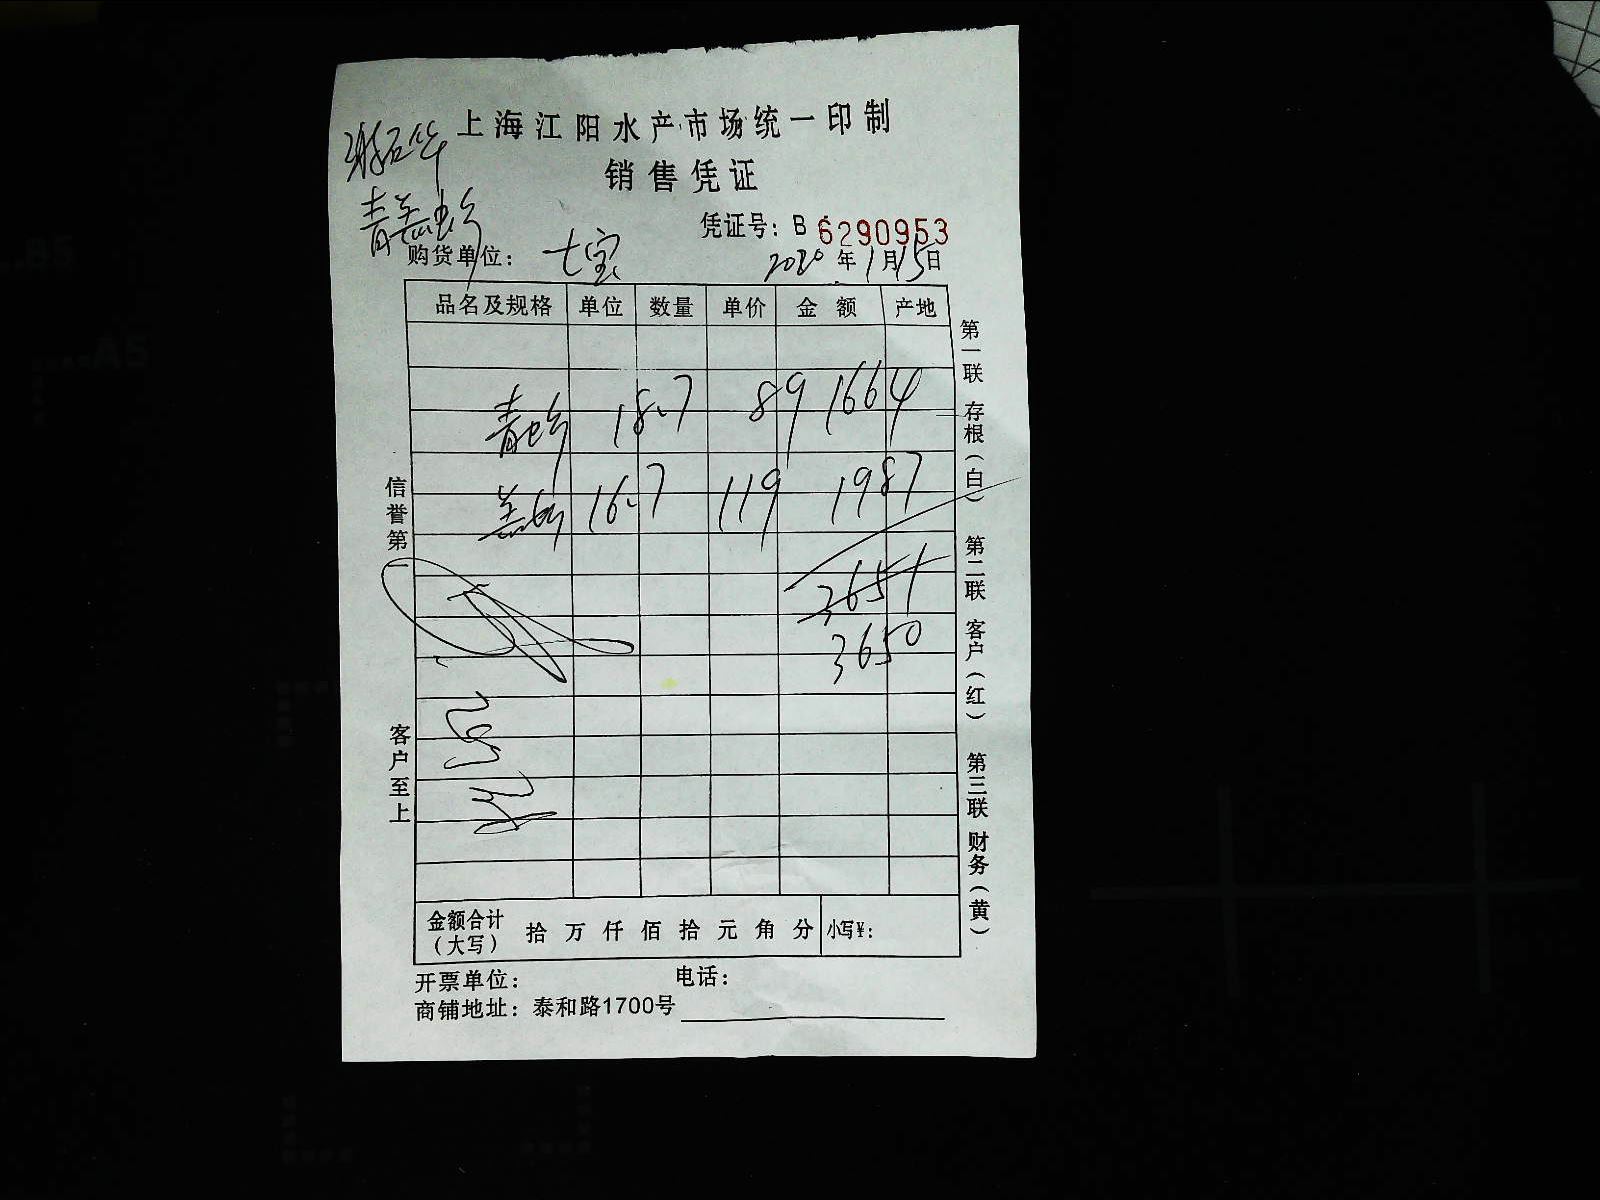 上海江阳水产市场统一印制
销售凭证
凭证号: B 6290953
购货单位: 七宝 2020年1月15日
品名及规格 单位 数量 单价 金额 产地
18.7 89 1664
16.7 119 1987
3651
3650
信誉第一
客户至上
第一联 存根(白) 第二联 客户(红) 第三联 财务(黄)
金额合计(大写) 拾 万 仟 佰 拾 元 角 分 小写¥:
开票单位: 电话:
商铺地址: 泰和路1700号